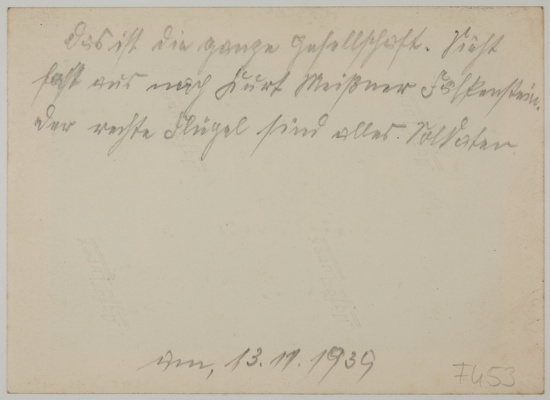 Das ist die ganze Gesellschaft. Sieht
fast aus nach Kurt Meißner Falkenstein.
Der rechte Flügel sind alles Soldaten
am, 13.11.1939
F453